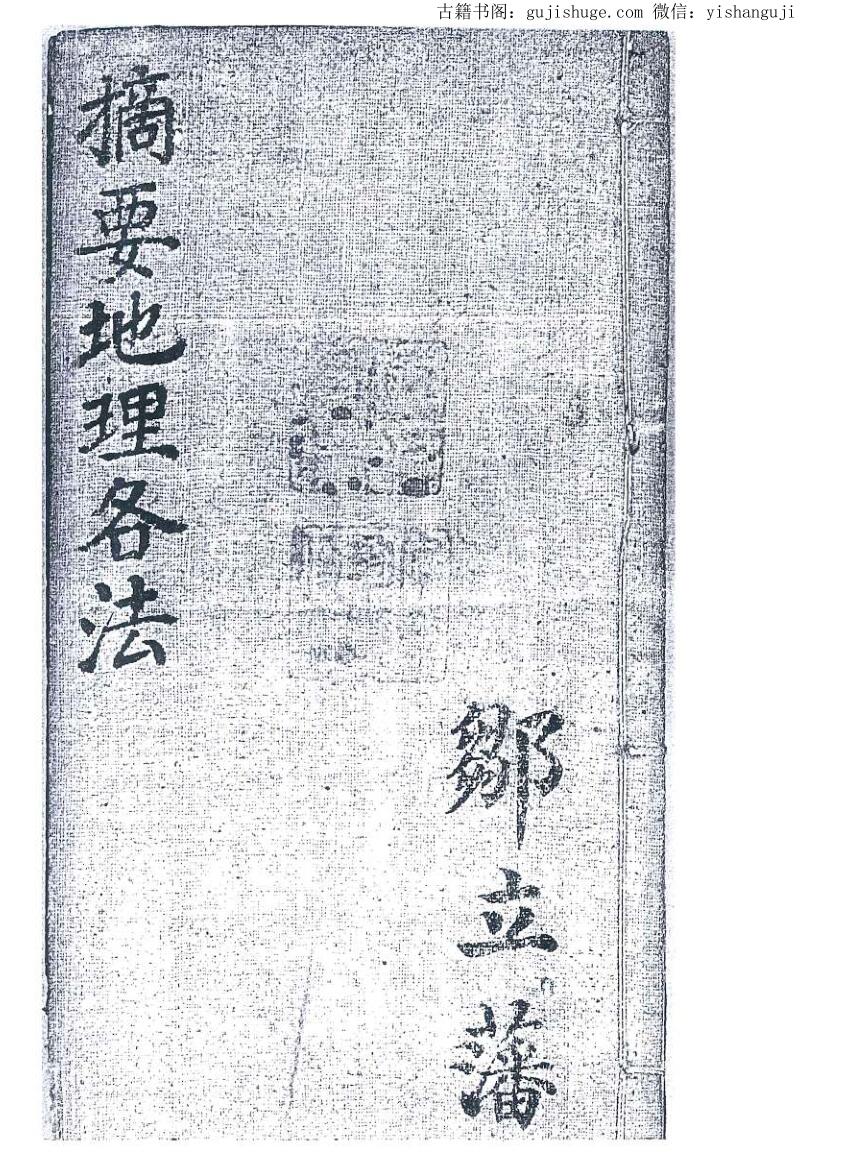 古籍书阁：gujishuge.com 微信：yishanguji
摘要地理各法
鄒立藩